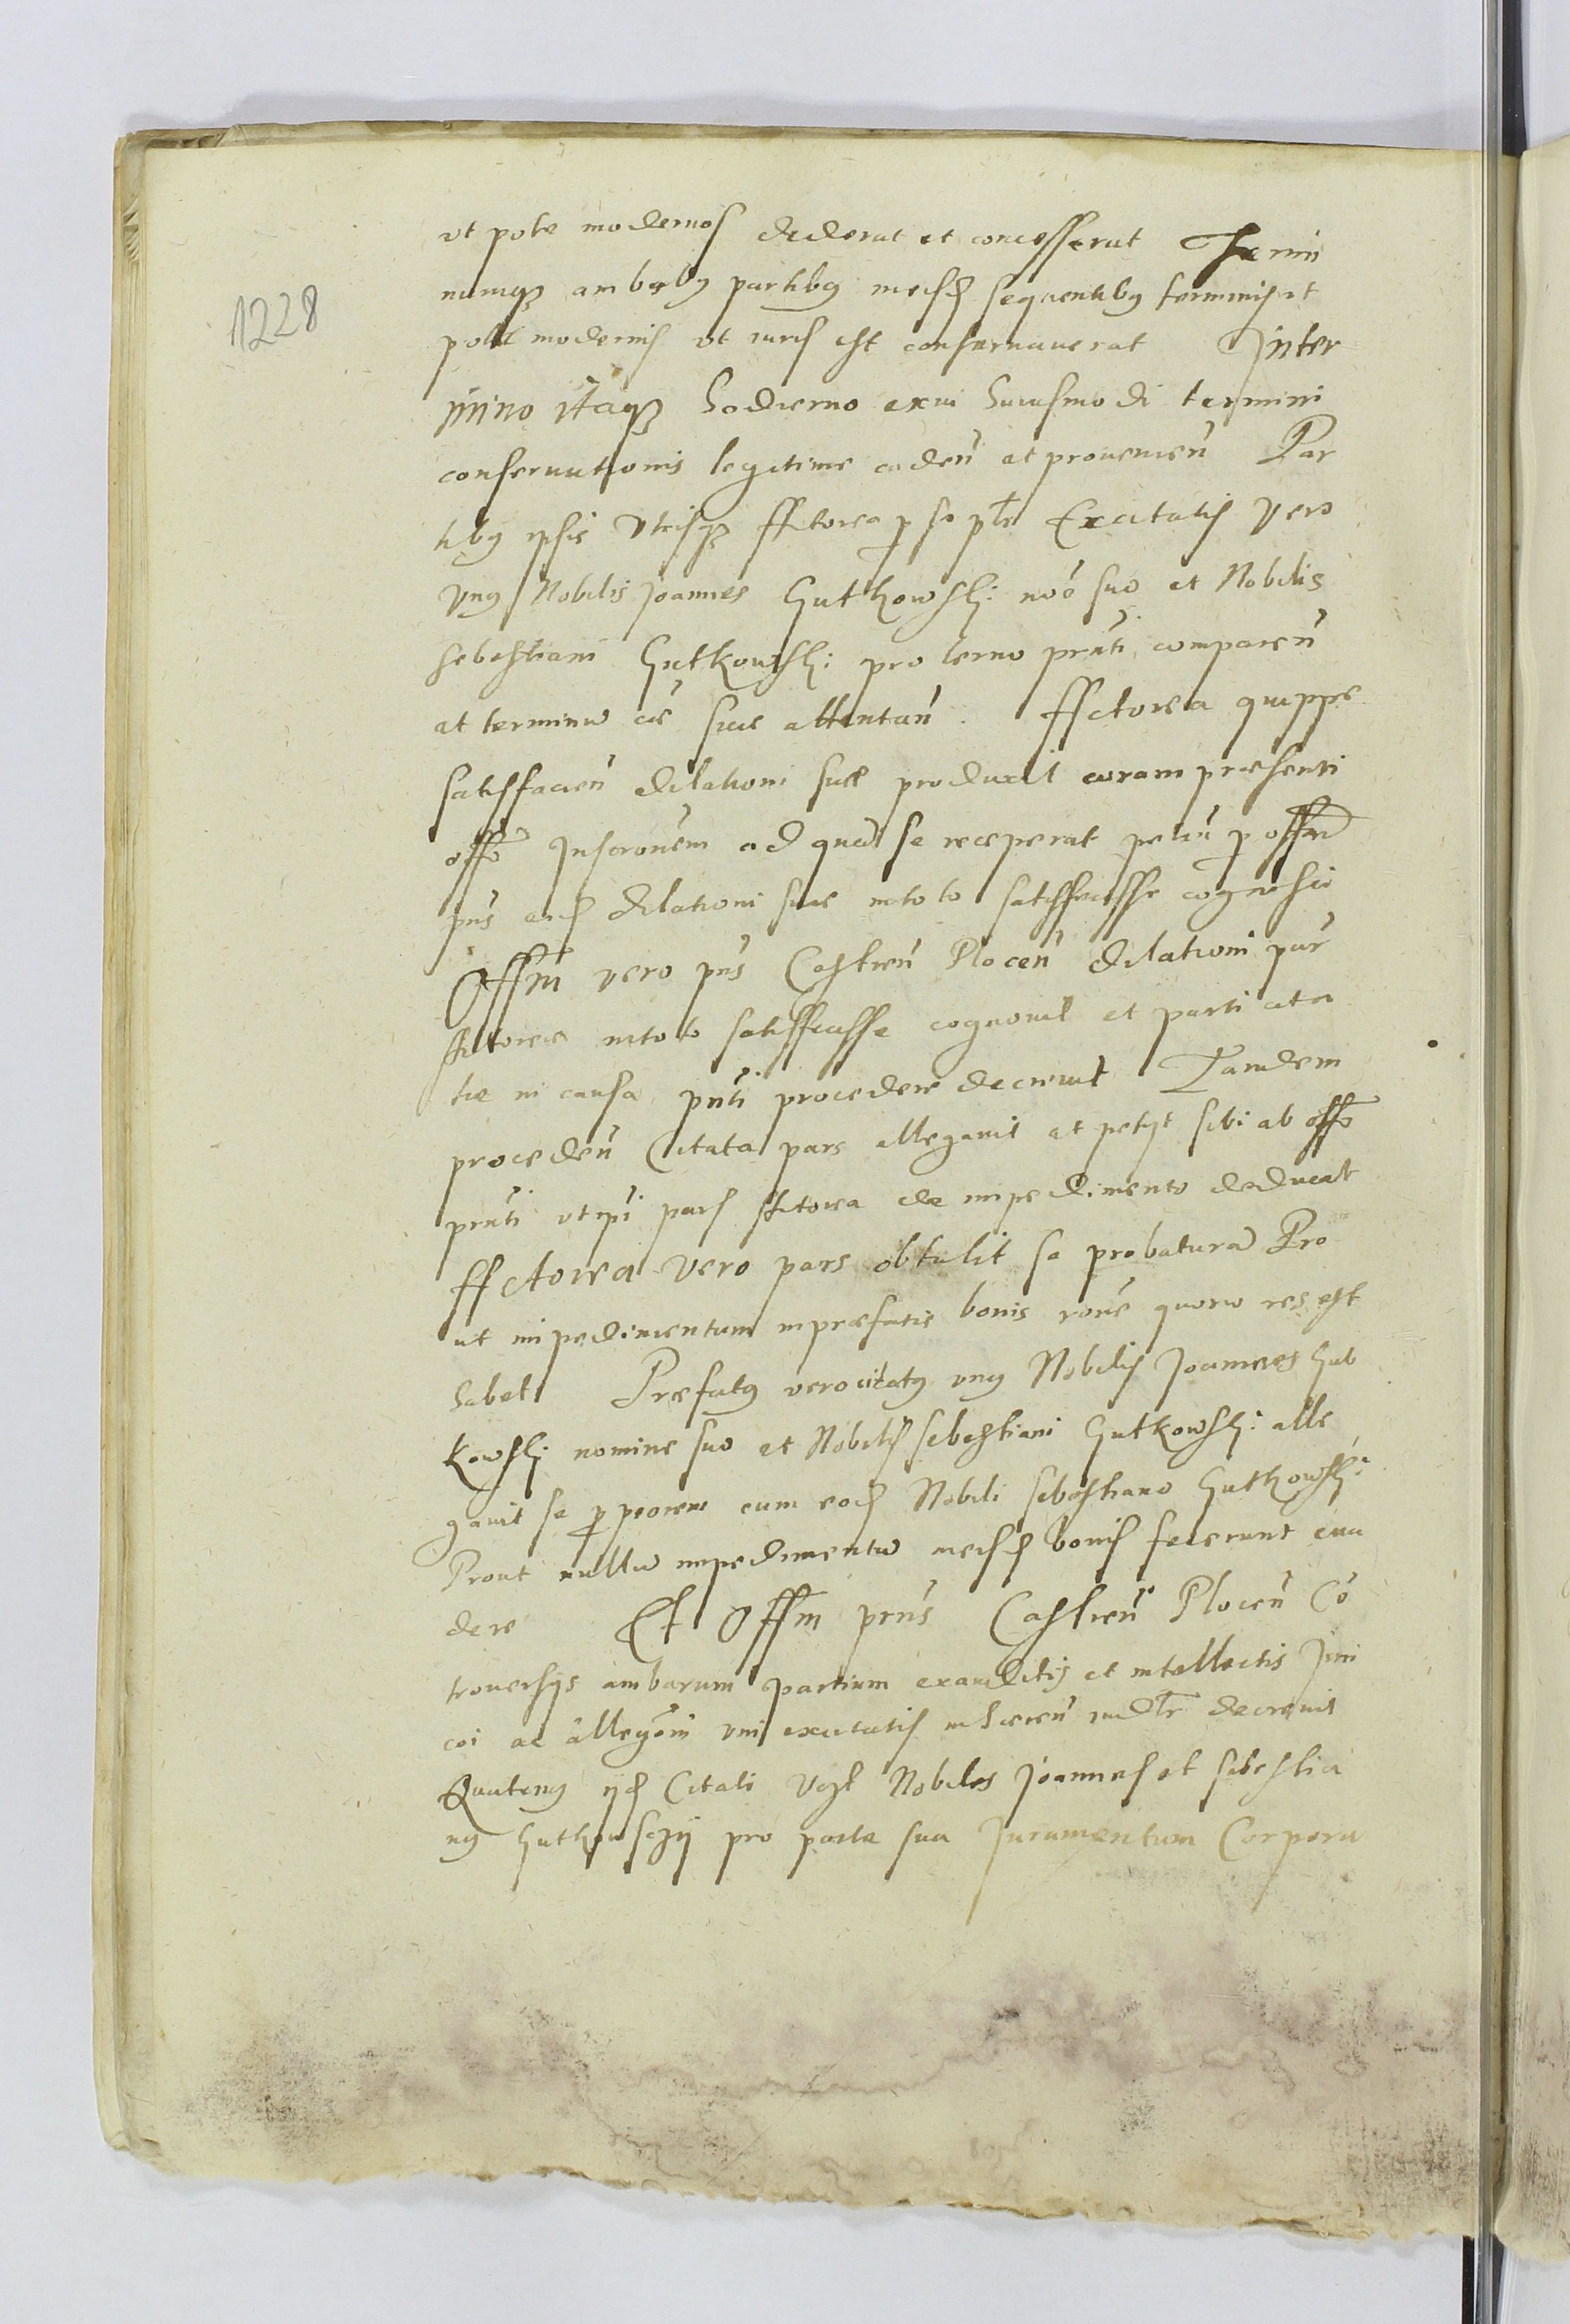 ut pote modernos dederat et concesserat Termi
numq3 ambabus partibus in eisd sequentibus terminis ut
pote modernis ut iuris est conservaverat In ter
mino itaq3 hodierno ex vi huiusmodi termini
conservationis legitime caden̄ et provenien̄ Par
tibus ipsis utrisq3 Actorea p se plr Ex citatis vero
unus Nobilis Joannes Gutkowskj: noē suo et Nobilis
Sebestiani Gutkowskj: pro termo prn̄ti comparen̄
et terminū cā suae attentan̄. Actorea quippe
satisffacien̄ dilationi suae produxit coram praesenti
offo Inscronem ad quā se receperat peten̄ p offm
pn̄s eisd dilationi suae in toto satisffecisse cognosci
Offm vero pn̄s Castren̄ Plocen̄ dilationi par
Actorea in toto satisffecisse cognovit et parti cita
tae in causa prn̄ti procedere decrevit Tandem
proceden̄ Citata pars allegavit et petyt sibi ab offo
prn̄ti ut ipi pars Actorea de impedimento deducat
Actorea vero pars obtulit se probaturā Pro
ut impedimentum in praefatis bonis rone quorū res est
habet Praefatus vero citatus unus Nobilis Joannes Gut
kowskj nomine suo et Nobilis Sebestiani Gutkowskj: alle
gavit se p priorem cum eod Nobili Sebestiano Gutkowskj:
Prout nullū impedimentū in eisd bonis fecerunt eva
dere Et Offm prn̄s Castren̄ Plocen̄ Co
troversys ambarum partium exauditis et intellectis
ac allegom uni ex citatis inhaeren̄ decrevit
Quatenus ijd Citati Nobiles Joannes et Sebestia
nus Gutkowsczij pro parte sua Juramentum Corpora
1228